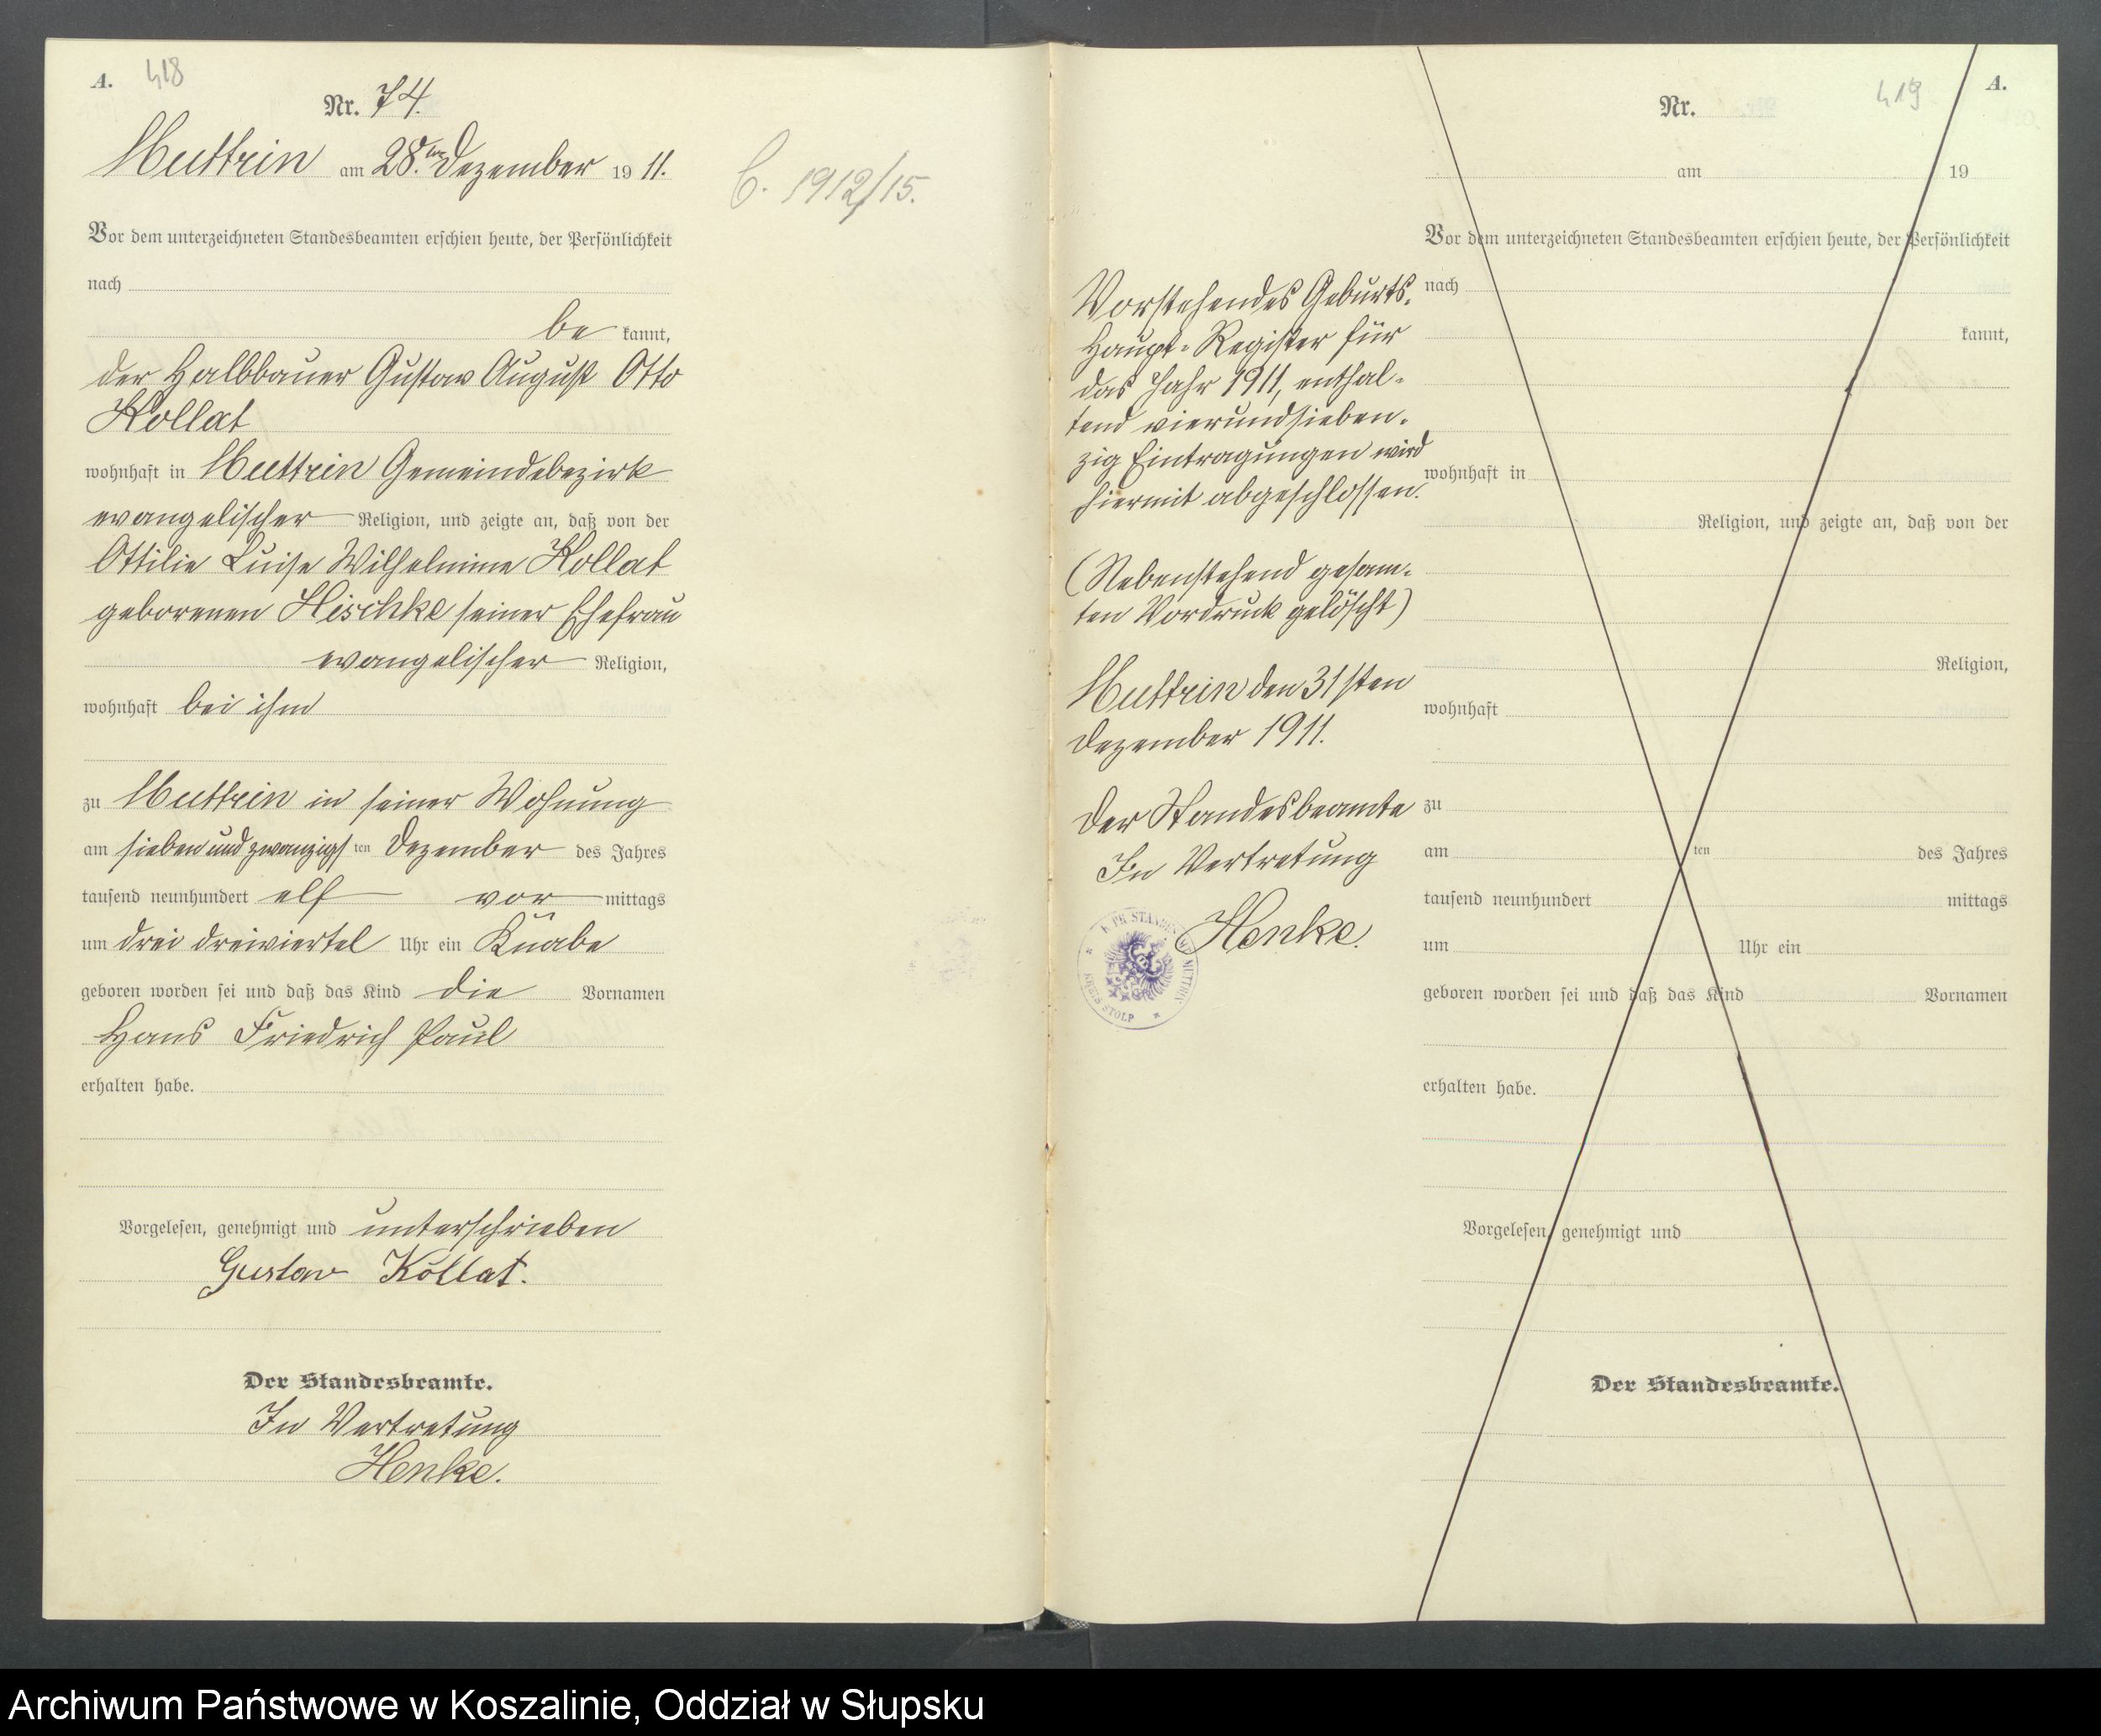 A. 418
Nr. 74.
Muttrin am 28.ten Dezember 1911.
C. 1912/15.
Vor dem unterzeichneten Standesbeamten erschien heute, der Persönlichkeit
nach
be kannt,
der Halbbauer Gustav August Otto
Kollat
wohnhaft in Muttrin Gemeindebezirk
evangelischer Religion, und zeigte an, daß von der
Ottilie Luise Wilhelmine Kollat
geborenen Hischke seiner Ehefrau
evangelischer Religion,
wohnhaft bei ihm
zu Muttrin in seiner Wohnung
am siebenundzwanzigsten Dezember des Jahres
tausend neunhundert elf vor mittags
um drei dreiviertel Uhr ein Knabe
geboren worden sei und daß das Kind die Vornamen
Hans Friedrich Paul
erhalten habe.
Vorgelesen, genehmigt und unterschrieben
Gustav Kollat.
Der Standesbeamte.
In Vertretung
Henke.
419 A.
Nr.
am 19
Vor dem unterzeichneten Standesbeamten erschien heute, der Persönlichkeit
nach
kannt,
wohnhaft in
Religion, und zeigte an, daß von der
Religion,
wohnhaft
zu
am ten des Jahres
tausend neunhundert mittags
um Uhr ein
geboren worden sei und daß das Kind Vornamen
erhalten habe.
Vorgelesen, genehmigt und
Der Standesbeamte.
Vorstehendes Geburts-
Haupt-Register für
das Jahr 1911, enthal-
tend vierundsieben-
zig Eintragungen wird
hiermit abgeschlossen.
(Nebenstehend gesam-
ten Vordruck gelöscht)
Muttrin den 31sten
Dezember 1911.
Der Standesbeamte
In Vertretung
Henke.
K. PR. STANDESAMT MUTTRIN
KREIS STOLP
Archiwum Państwowe w Koszalinie, Oddział w Słupsku